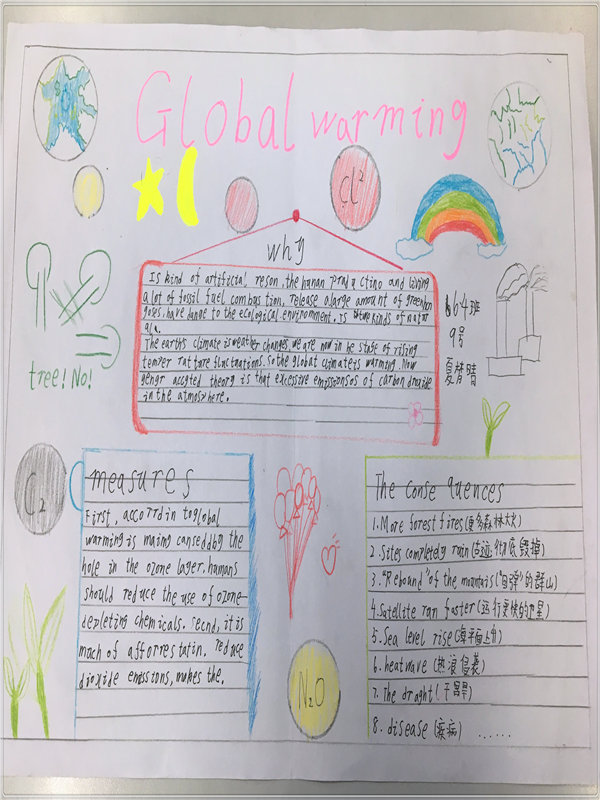 Global warming
Cl²
why
Is kind of artificial reson, the human Produ ctino and living
a lot of fossil fuel combustion, release a large amount of green
goses, have dange to the ecological environment. Is kinds of natur
The earth's climate is weather changes, we are now in he state of rising
temper ratture fluctnations. So the globat climate is warming. Now
accgted theory is that excessive emissionsos of carbon droxide
in the atmosphere.
六4班
9号
夏梦晴
tree! No!
C₂
measures
First, accordin toglobal
warming is maing cansedbg the
hole in the ozone lager. humans
should reduce the use of ozone-
depleting chemicals. Secnd, it is
much of afforrestatin. reduce
dioxide emissions, makes the.
N₂O
The conse quences
1. More forest fires (更多森林大火)
2. Sites completely ruin (古迹彻底毁掉)
3. "Rebound" of the mountais ("自弹"的群山)
4. Satellite ran faster (运行更快的卫星)
5. Sea level rise (海平面上升)
6. heatwave (热浪侵袭)
7. The draght! (干旱)
8. disease (疾病) ......